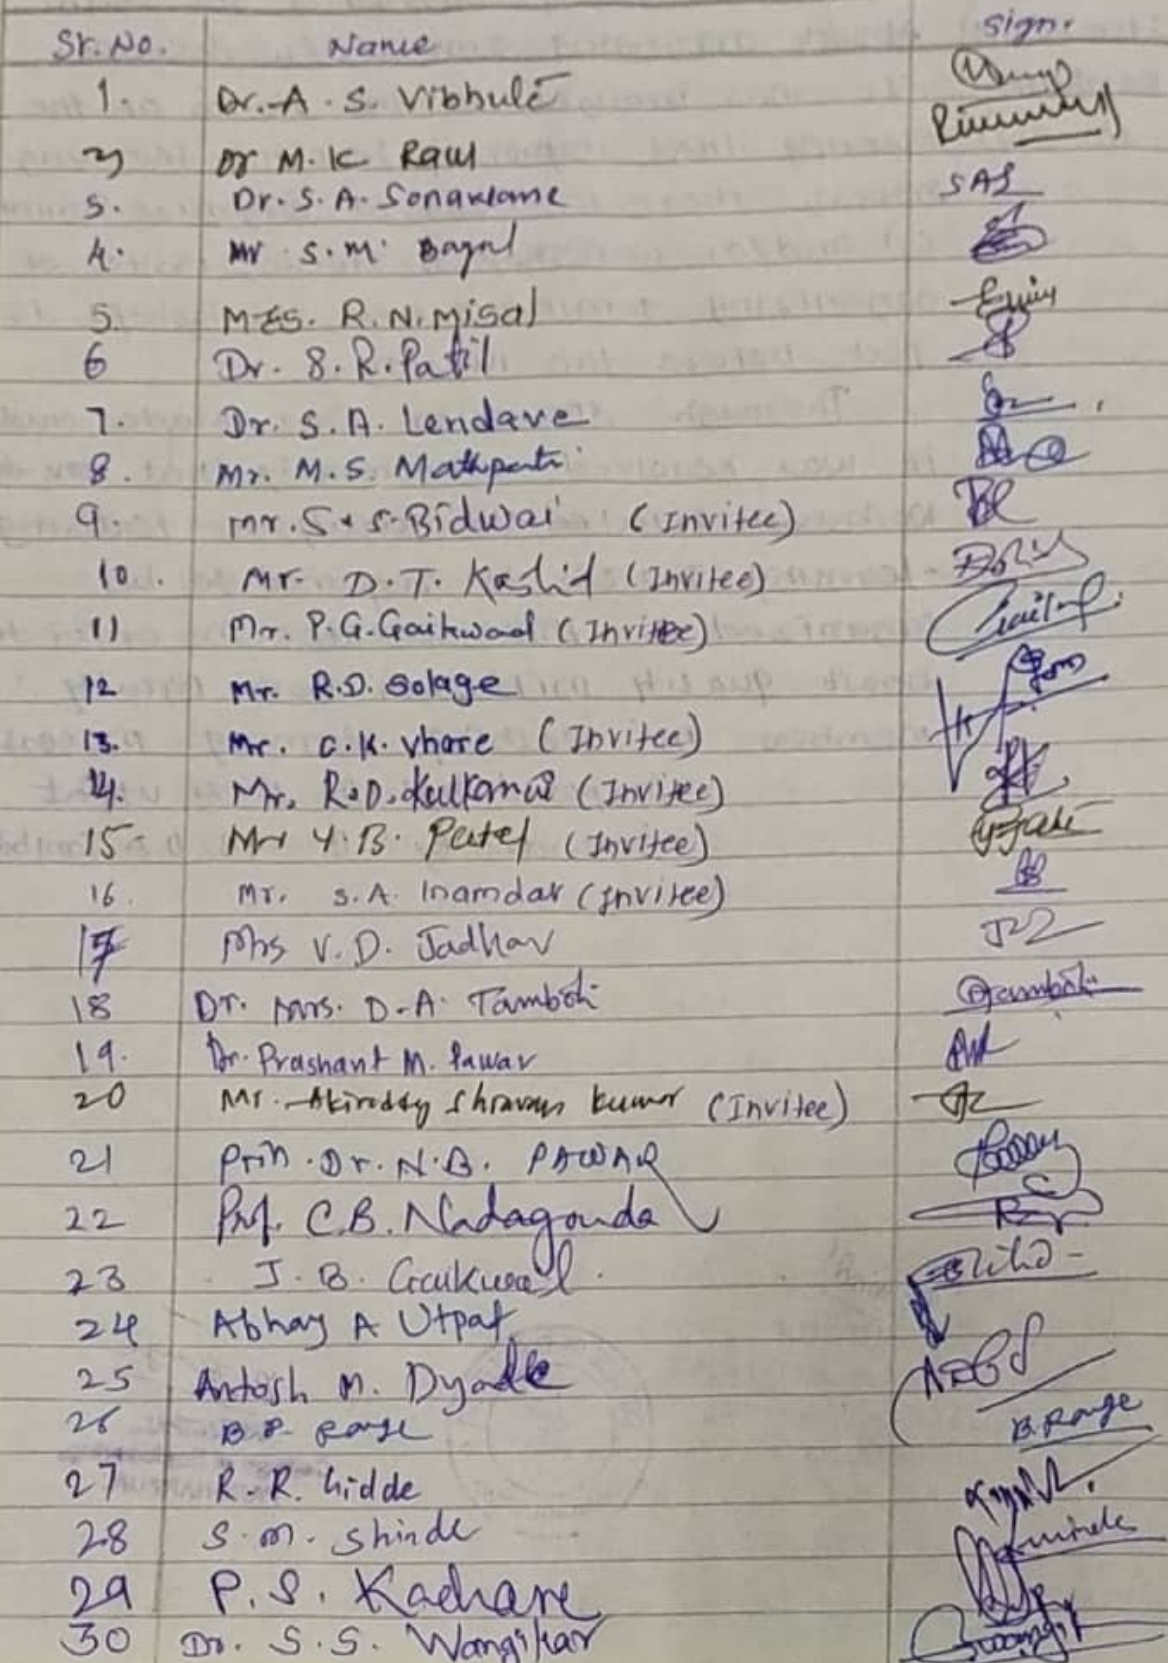 Sr. No. Name Sign.
1. Dr. A. S. Vibhute
2) Dr M. K. Raul
3. Dr. S. A. Sonawane SAS
4. Mr S. M. Bagal
5. Mrs. R. N. Misal
6 Dr. S. R. Patil
7. Dr. S. A. Lendave
8. Mr. M. S. Mathpati
9. Mr. S. S. Bidwai (Invitee)
10. Mr. D. T. Kashid (Invitee)
11 Mr. P. G. Gaikwad (Invitee)
12 Mr. R. D. Solage
13. Mr. C. K. Vhare (Invitee)
14. Mr. R. D. Kulkarni (Invitee)
15 Mr Y. B. Patel (Invitee)
16. Mr. S. A. Inamdar (Invitee)
17 Mrs V. D. Jadhav
18 Dr. Mrs. D. A. Tamboli
19. Dr. Prashant M. Pawar
20 Mr. Akireddy Shravan Kumar (Invitee)
21 Prin. Dr. N. B. PAWAR
22 Prof. C. B. Nadagouda
23 J. B. Gaikwad
24 Abhay A Utpat
25 Antosh M. Dyade
26 B. P. Ronge B. Ronge
27 R. R. Gidde
28 S. M. Shinde
29 P. S. Kachare
30 Dr. S. S. Wangikar